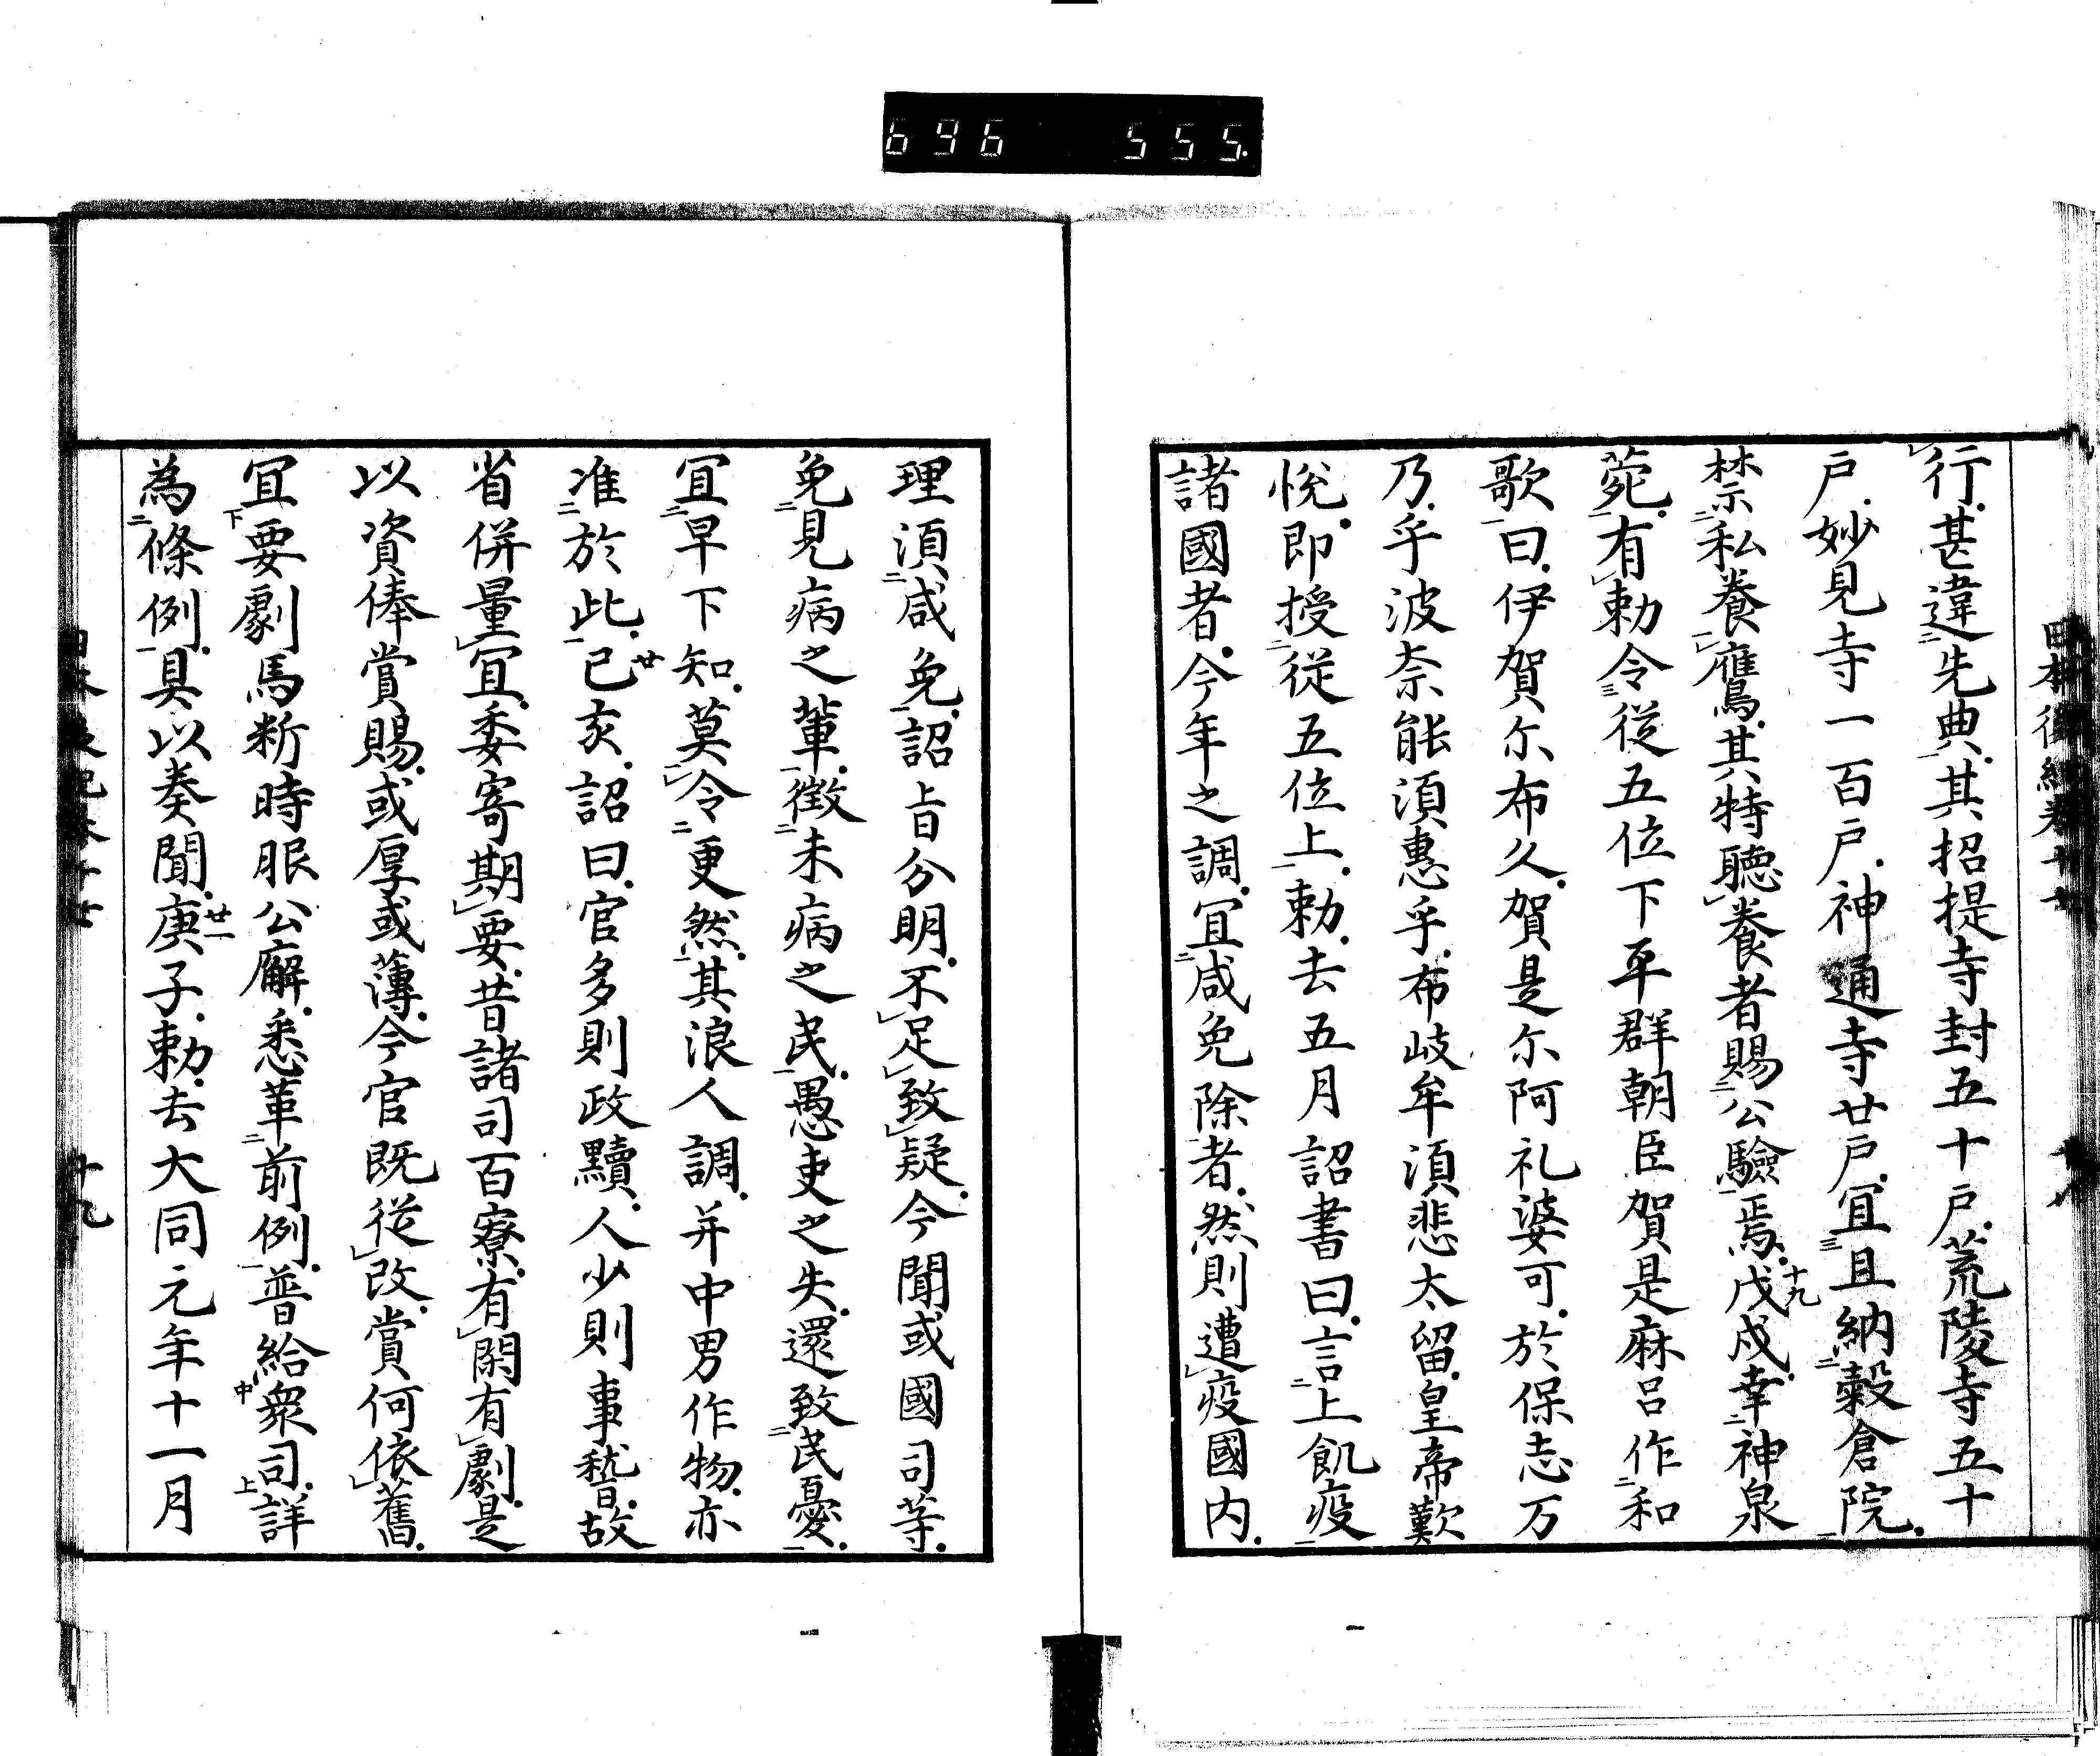 696 555.
行甚違先典其招提寺封五十戸荒陵寺五十
戸妙見寺一百戸神通寺廿戸宜且納穀倉院
禁私養鷹其特聴養者賜公驗焉十九戊戌幸神泉
苑有勅令從五位下平群朝臣賀是麻呂作和
歌曰伊賀尓布久賀是尓阿礼婆可於保志万
乃乎波奈能須惠乎布岐牟須悲太留皇帝歎
悅即授從五位上勅去五月詔書曰言上飢疫
諸國者今年之調宜咸免除者然則遭疫國内
理須咸免詔旨分明不足致疑今聞或國司等
免見病之輩徴未病之民愚吏之失還致民憂
宜早下知莫令更然其浪人調并中男作物亦
准於此廿己亥詔曰官多則政黷人少則事嵆故
省併量宜委寄期要昔諸司百寮有閑有劇是
以資俸賞賜或厚或薄今官既從改賞何依舊
宜要劇馬断時服公廨悉革前例普給衆司詳
為條例具以奏聞廿一庚子勅去大同元年十一月